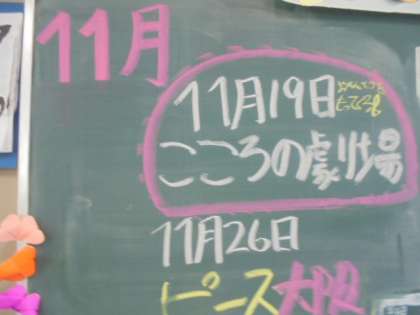 11月
11月19日
こころの劇場
11月26日
ピース大阪